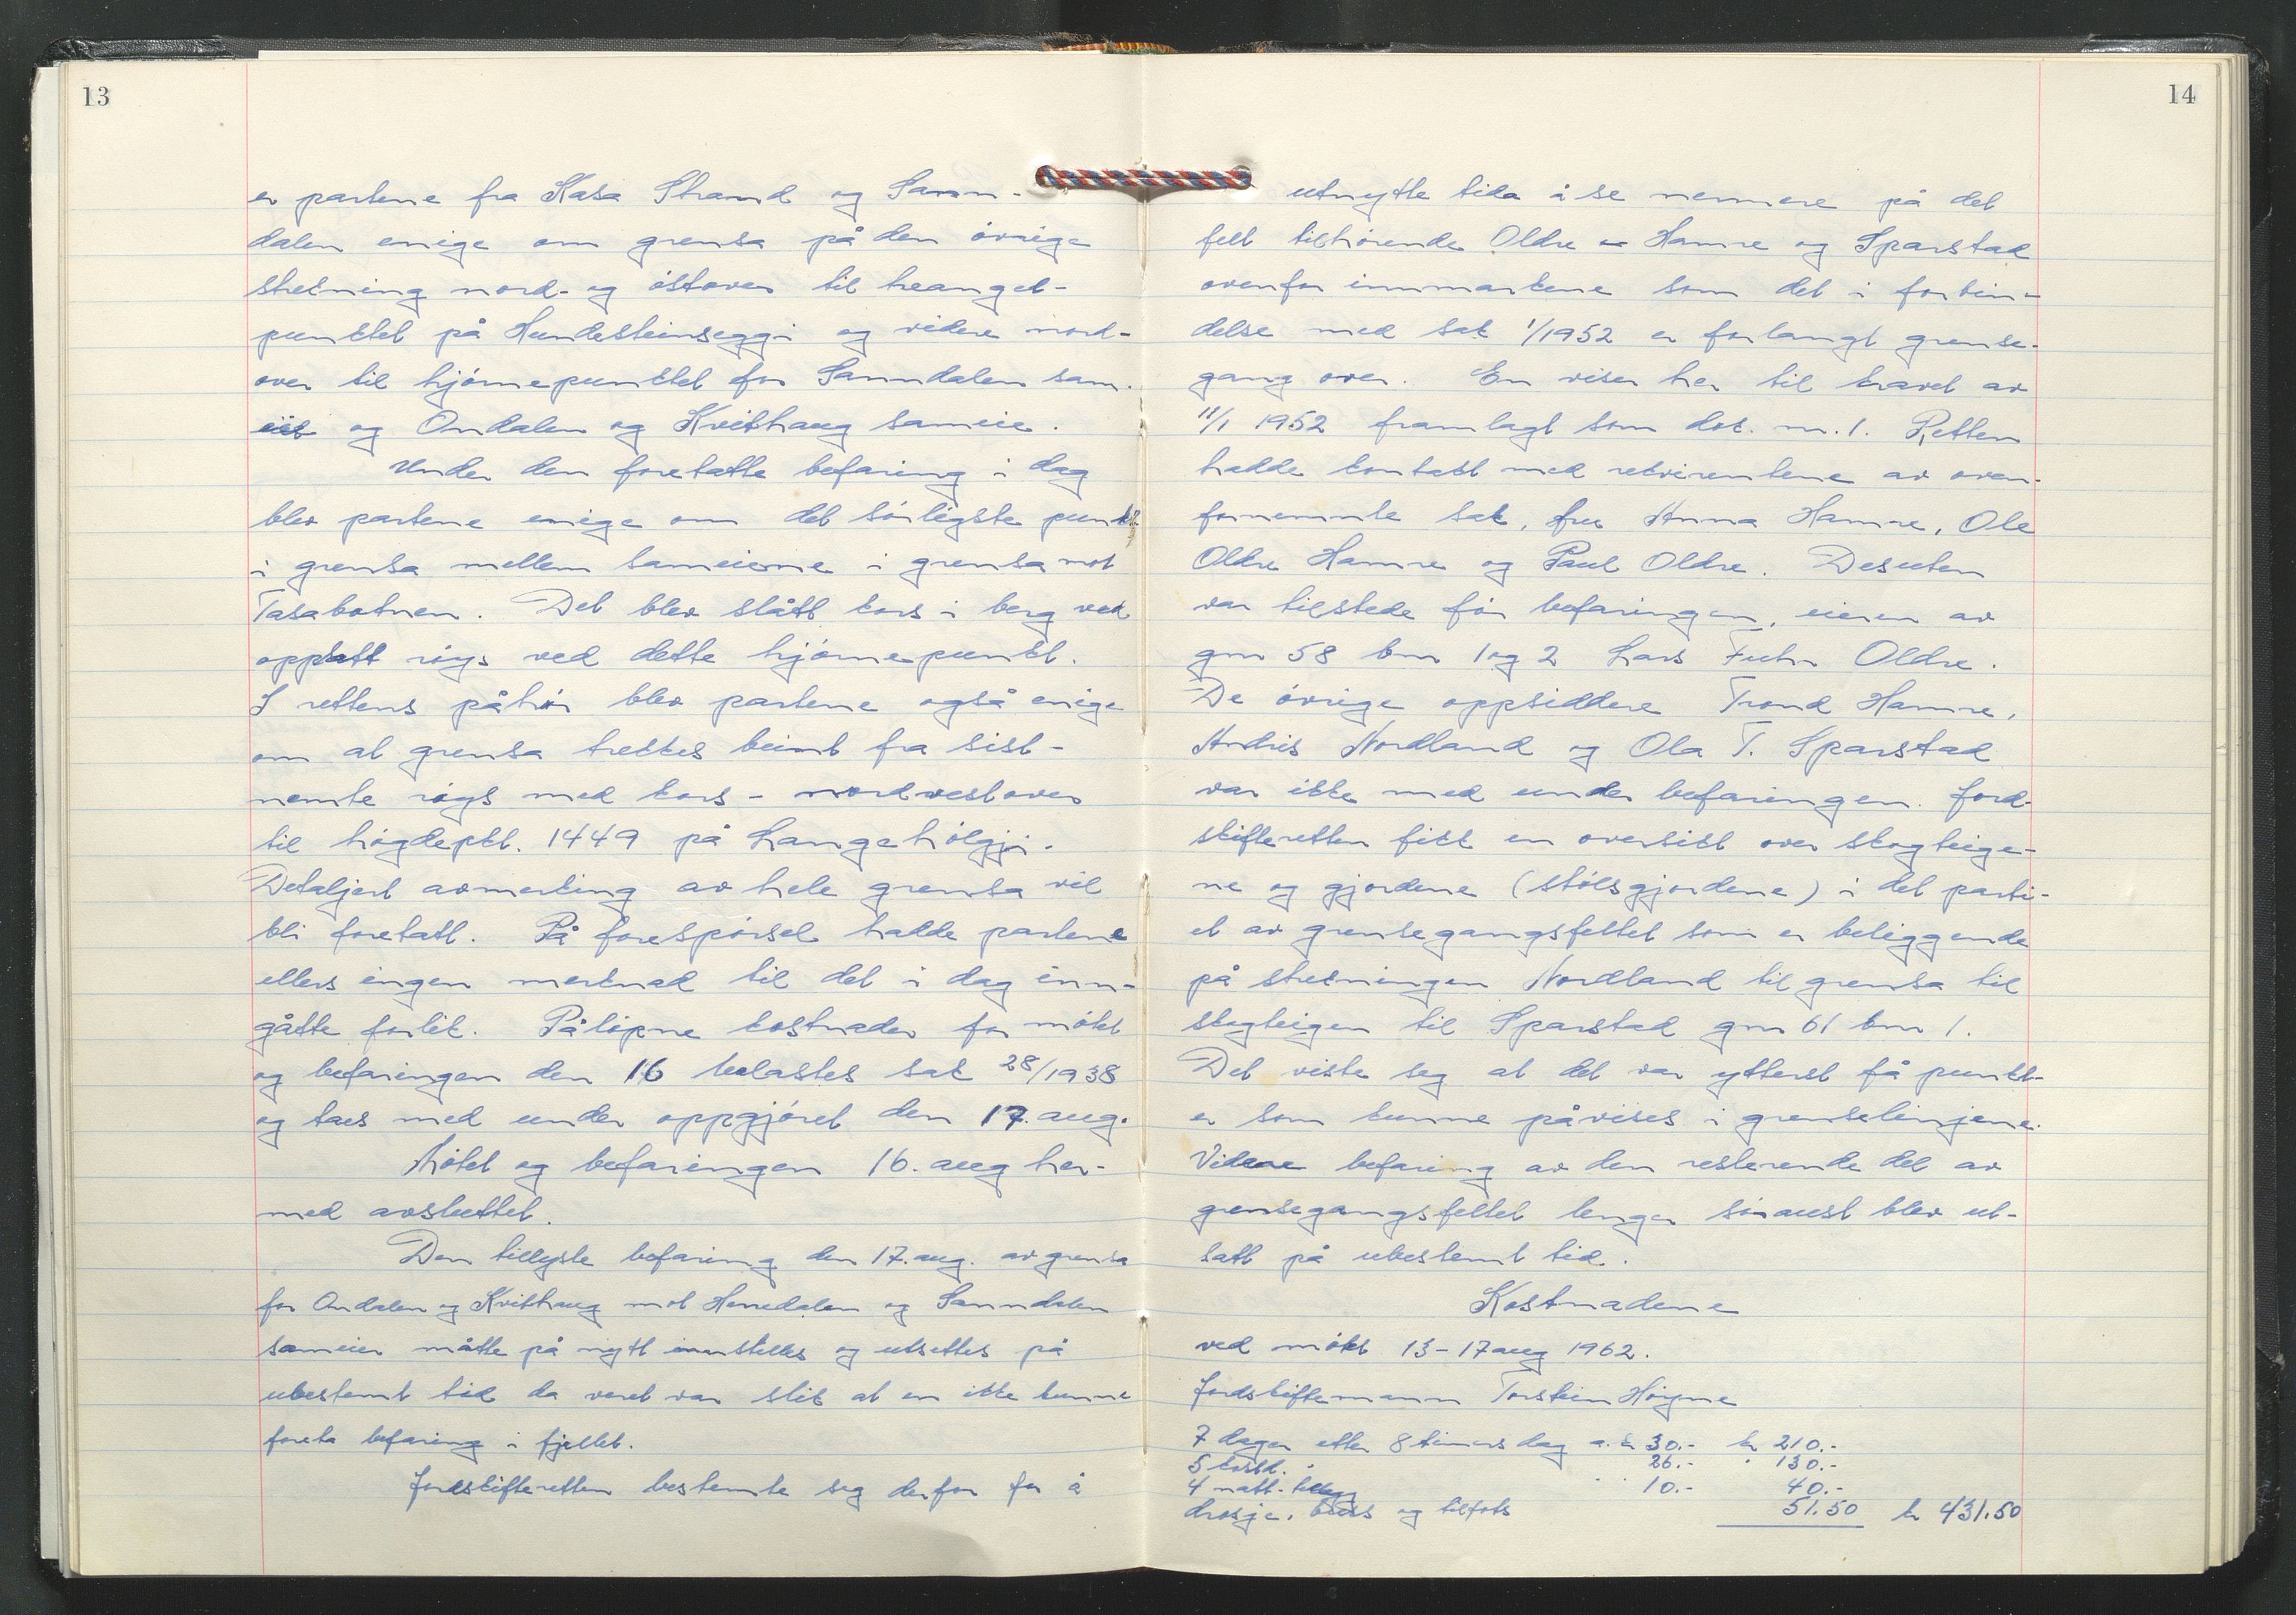 13
er partene fra Kasa Strand og Sann-
dalen enige om grensa på den øvrige
strekning nord- og østover til treangel-
punktet på Hundesteinseggi og videre nord-
over til hjørnepunktet for Sanndalen sam-
eie og Ondalen og Kvithaug sameie.
Under den foretatte befaring i dag
blev partene enige om det sørligste punkt
i grensa mellem sameierne i grensa mot
Tasabotnen. Det blev slått kors i berg ved
oppsatt røys ved dette hjørnepunkt.
I rettens påhør blev partene også enige
om at grensa trekkes beint fra sist-
nemte røys med kors - nordvestover
til høgdepkt. 1449 på Langehølgji.
Detaljert avmerking av hele grensa vil
bli foretatt. På forespørsel hadde partene
ellers ingen merknad til det i dag inn-
gåtte forlik. Påløpne kostnader for møtet
og befaringen den 16 belastes sak 28/1938
og taes med under oppgjøret den 17. aug.
Møtet og befaringen 16. aug her-
med avsluttet.
Den tillyste befaring den 17. aug. av grensa
for Ondalen og Kvithaug mot Herredalen og Sanndalen
sameier måtte på nytt innstilles og utsettes på
ubestemt tid da veret var slik at en ikke kunne
foreta befaring i fjellet.
Jordskifteretten bestemte seg derfor for å
14
utnytte tida å se nermere på det
felt tilhørende Oldre - Hamre og Sparstad
ovenfor innmarkene som det i forbin-
delse med sak 1/1952 er forlangt grense-
gang over. En viser her til kravet av
11/1 1952 framlagt som dok. nr. 1. Retten
hadde kontakt med rekvirentene av oven-
fornemnte sak, fru Anna Hamre, Ole
Oldre Hamre og Paul Oldre. Desuten
var tilstede før befaringen, eieren av
gnr 58 bnr 1 og 2 Lars Fuhr Oldre.
De øvrige oppsittere Trond Hamre,
Andris Nordland og Ola T. Sparstad
var ikke med under befaringen. Jord-
skifteretten fikk en oversikt over skogteige-
ne og gjordene (stølsgjordene) i det parti-
et av grensegangsfeltet som er beliggende
på strekningen Nordland til grensa til
skogteigen til Sparstad gnr 61 bnr 1.
Det viste seg at det var ytterst få punkt-
er som kunne påvises i grenselinjene.
Videre befaring av den resterende del av
grensegangsfeltet lenger søraust blev ut-
satt på ubestemt tid.
Kostnadene
ved møtet 13-17 aug 1962.
Jordskiftemann Torstein Høyne
7 dager etter 8 timers dag a. kr 30.- kr 210.-
5 kostd. " 26.- " 130.-
4 natt. tillegg " " 10.- 40.-
drosje, buss og tilfots 51.50 kr 431.50